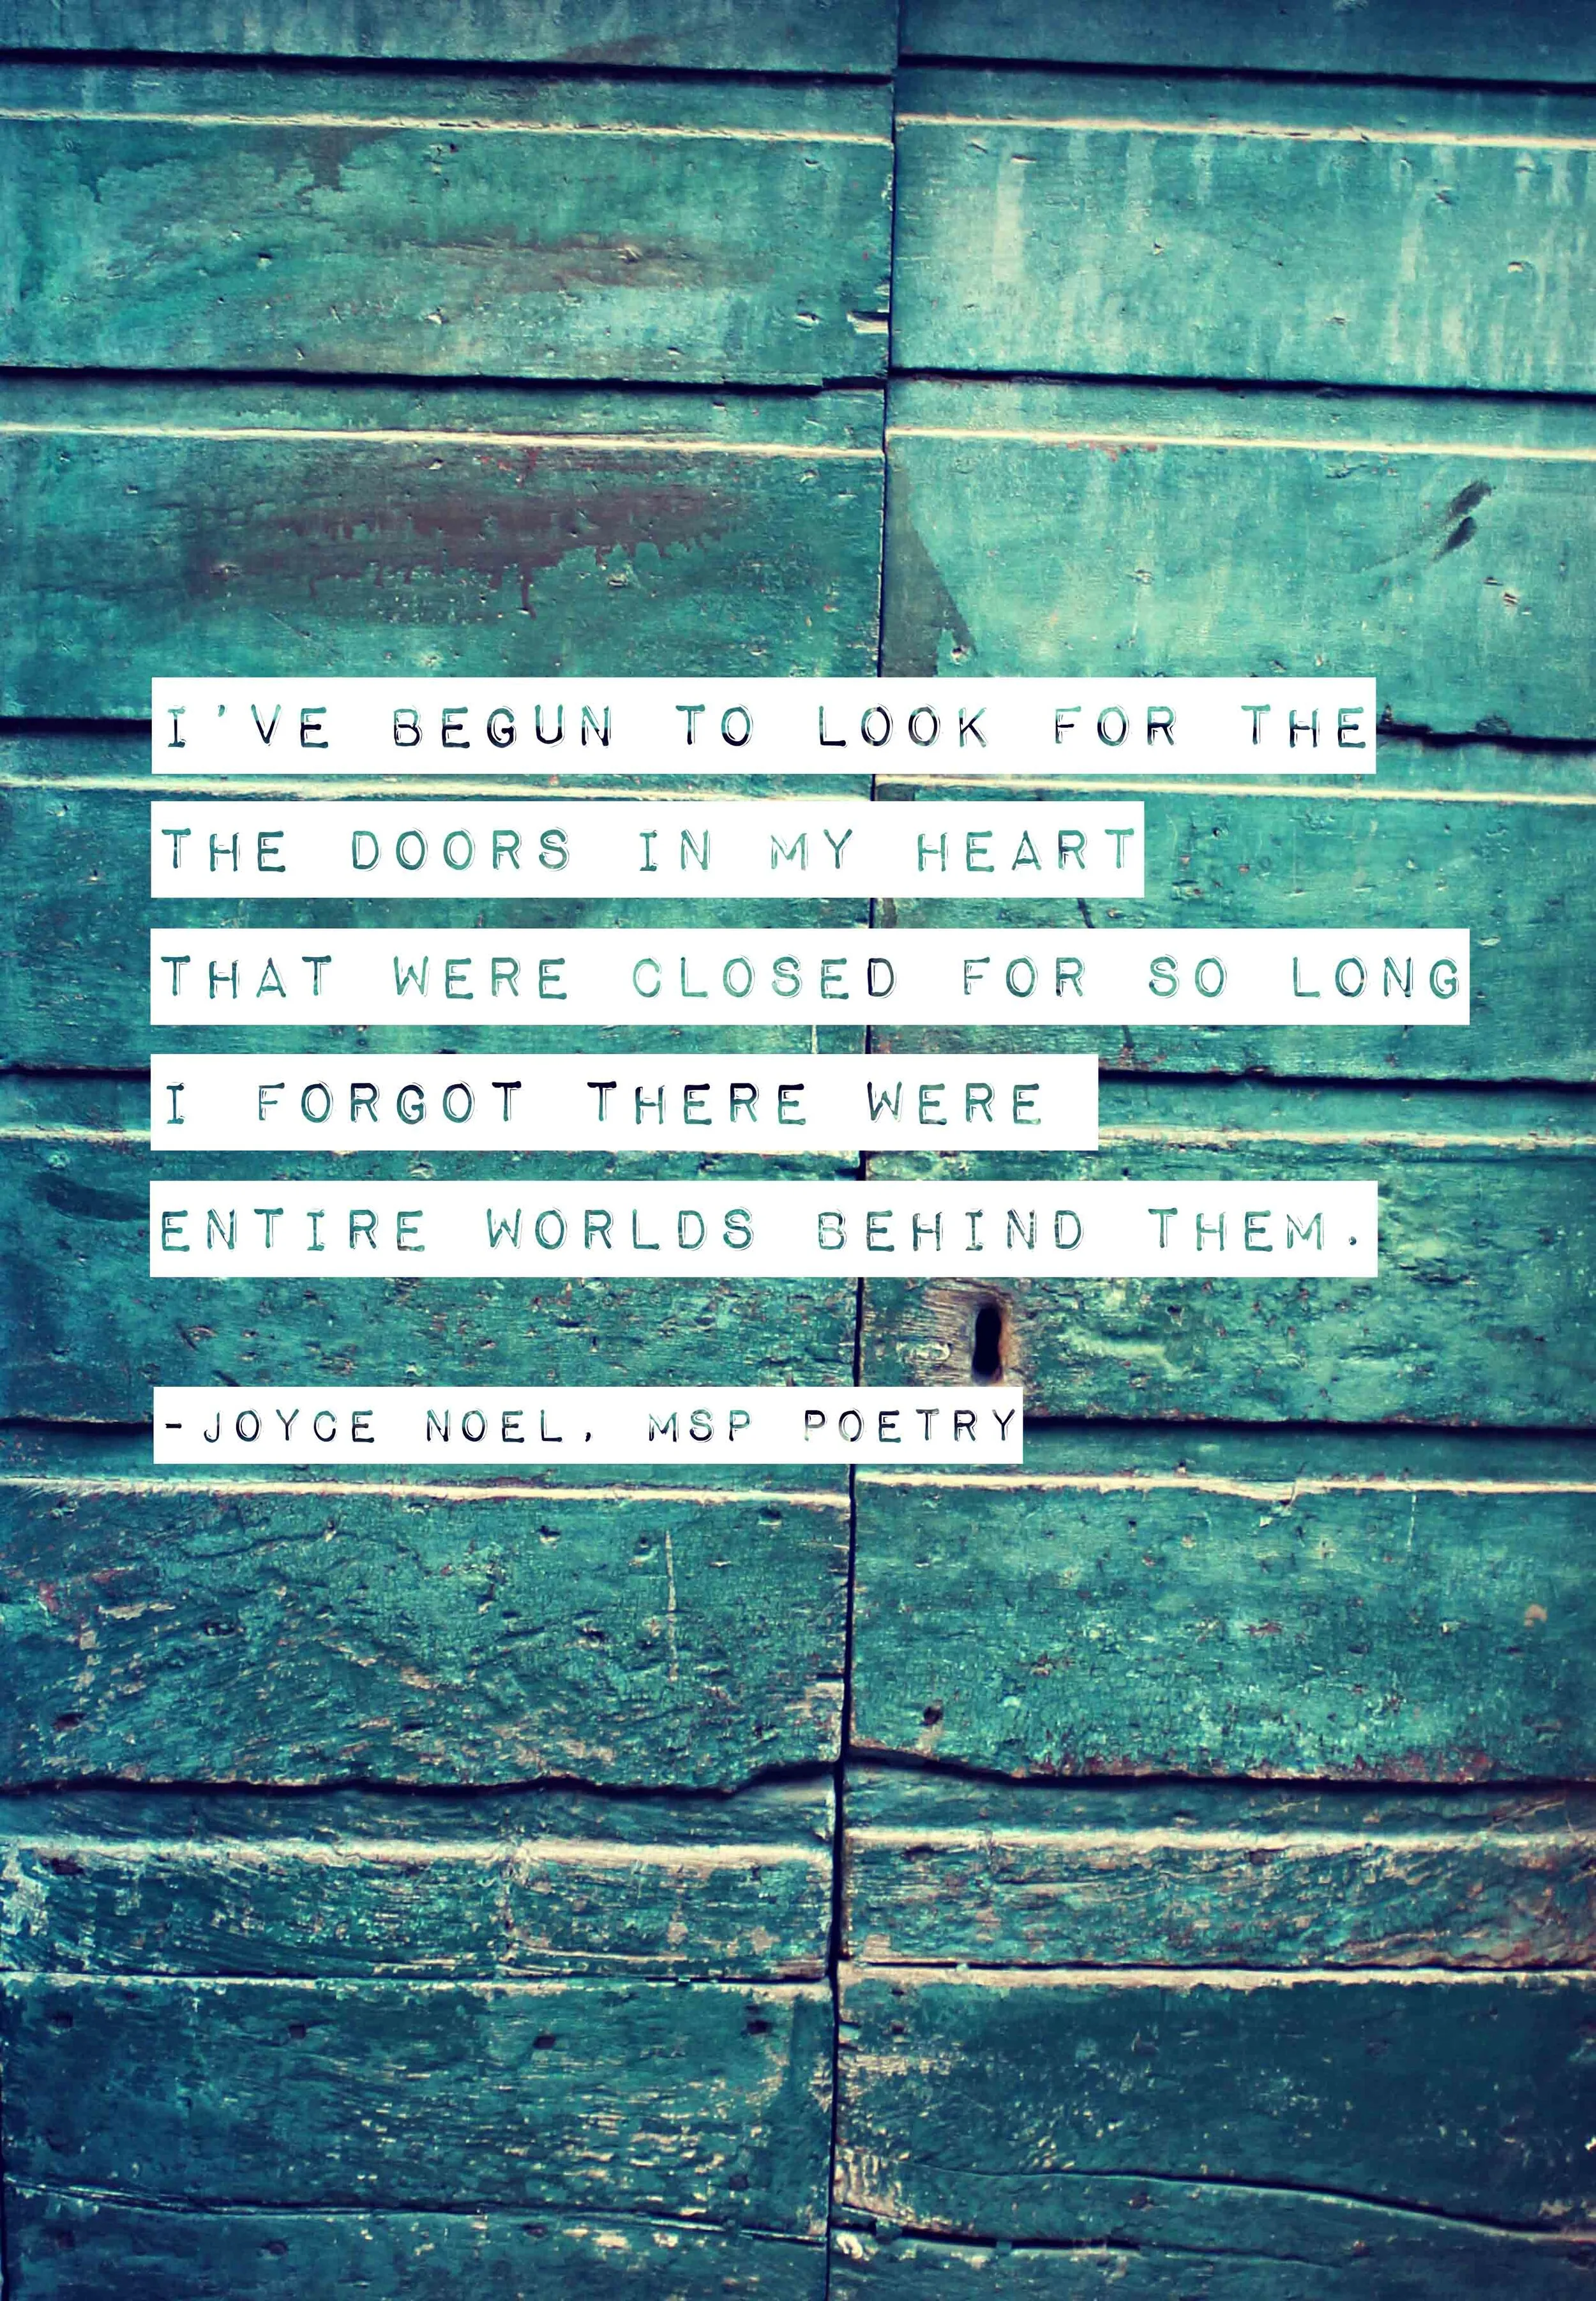 I'VE BEGUN TO LOOK FOR THE
THE DOORS IN MY HEART
THAT WERE CLOSED FOR SO LONG
I FORGOT THERE WERE
ENTIRE WORLDS BEHIND THEM.
-JOYCE NOEL, MSP POETRY